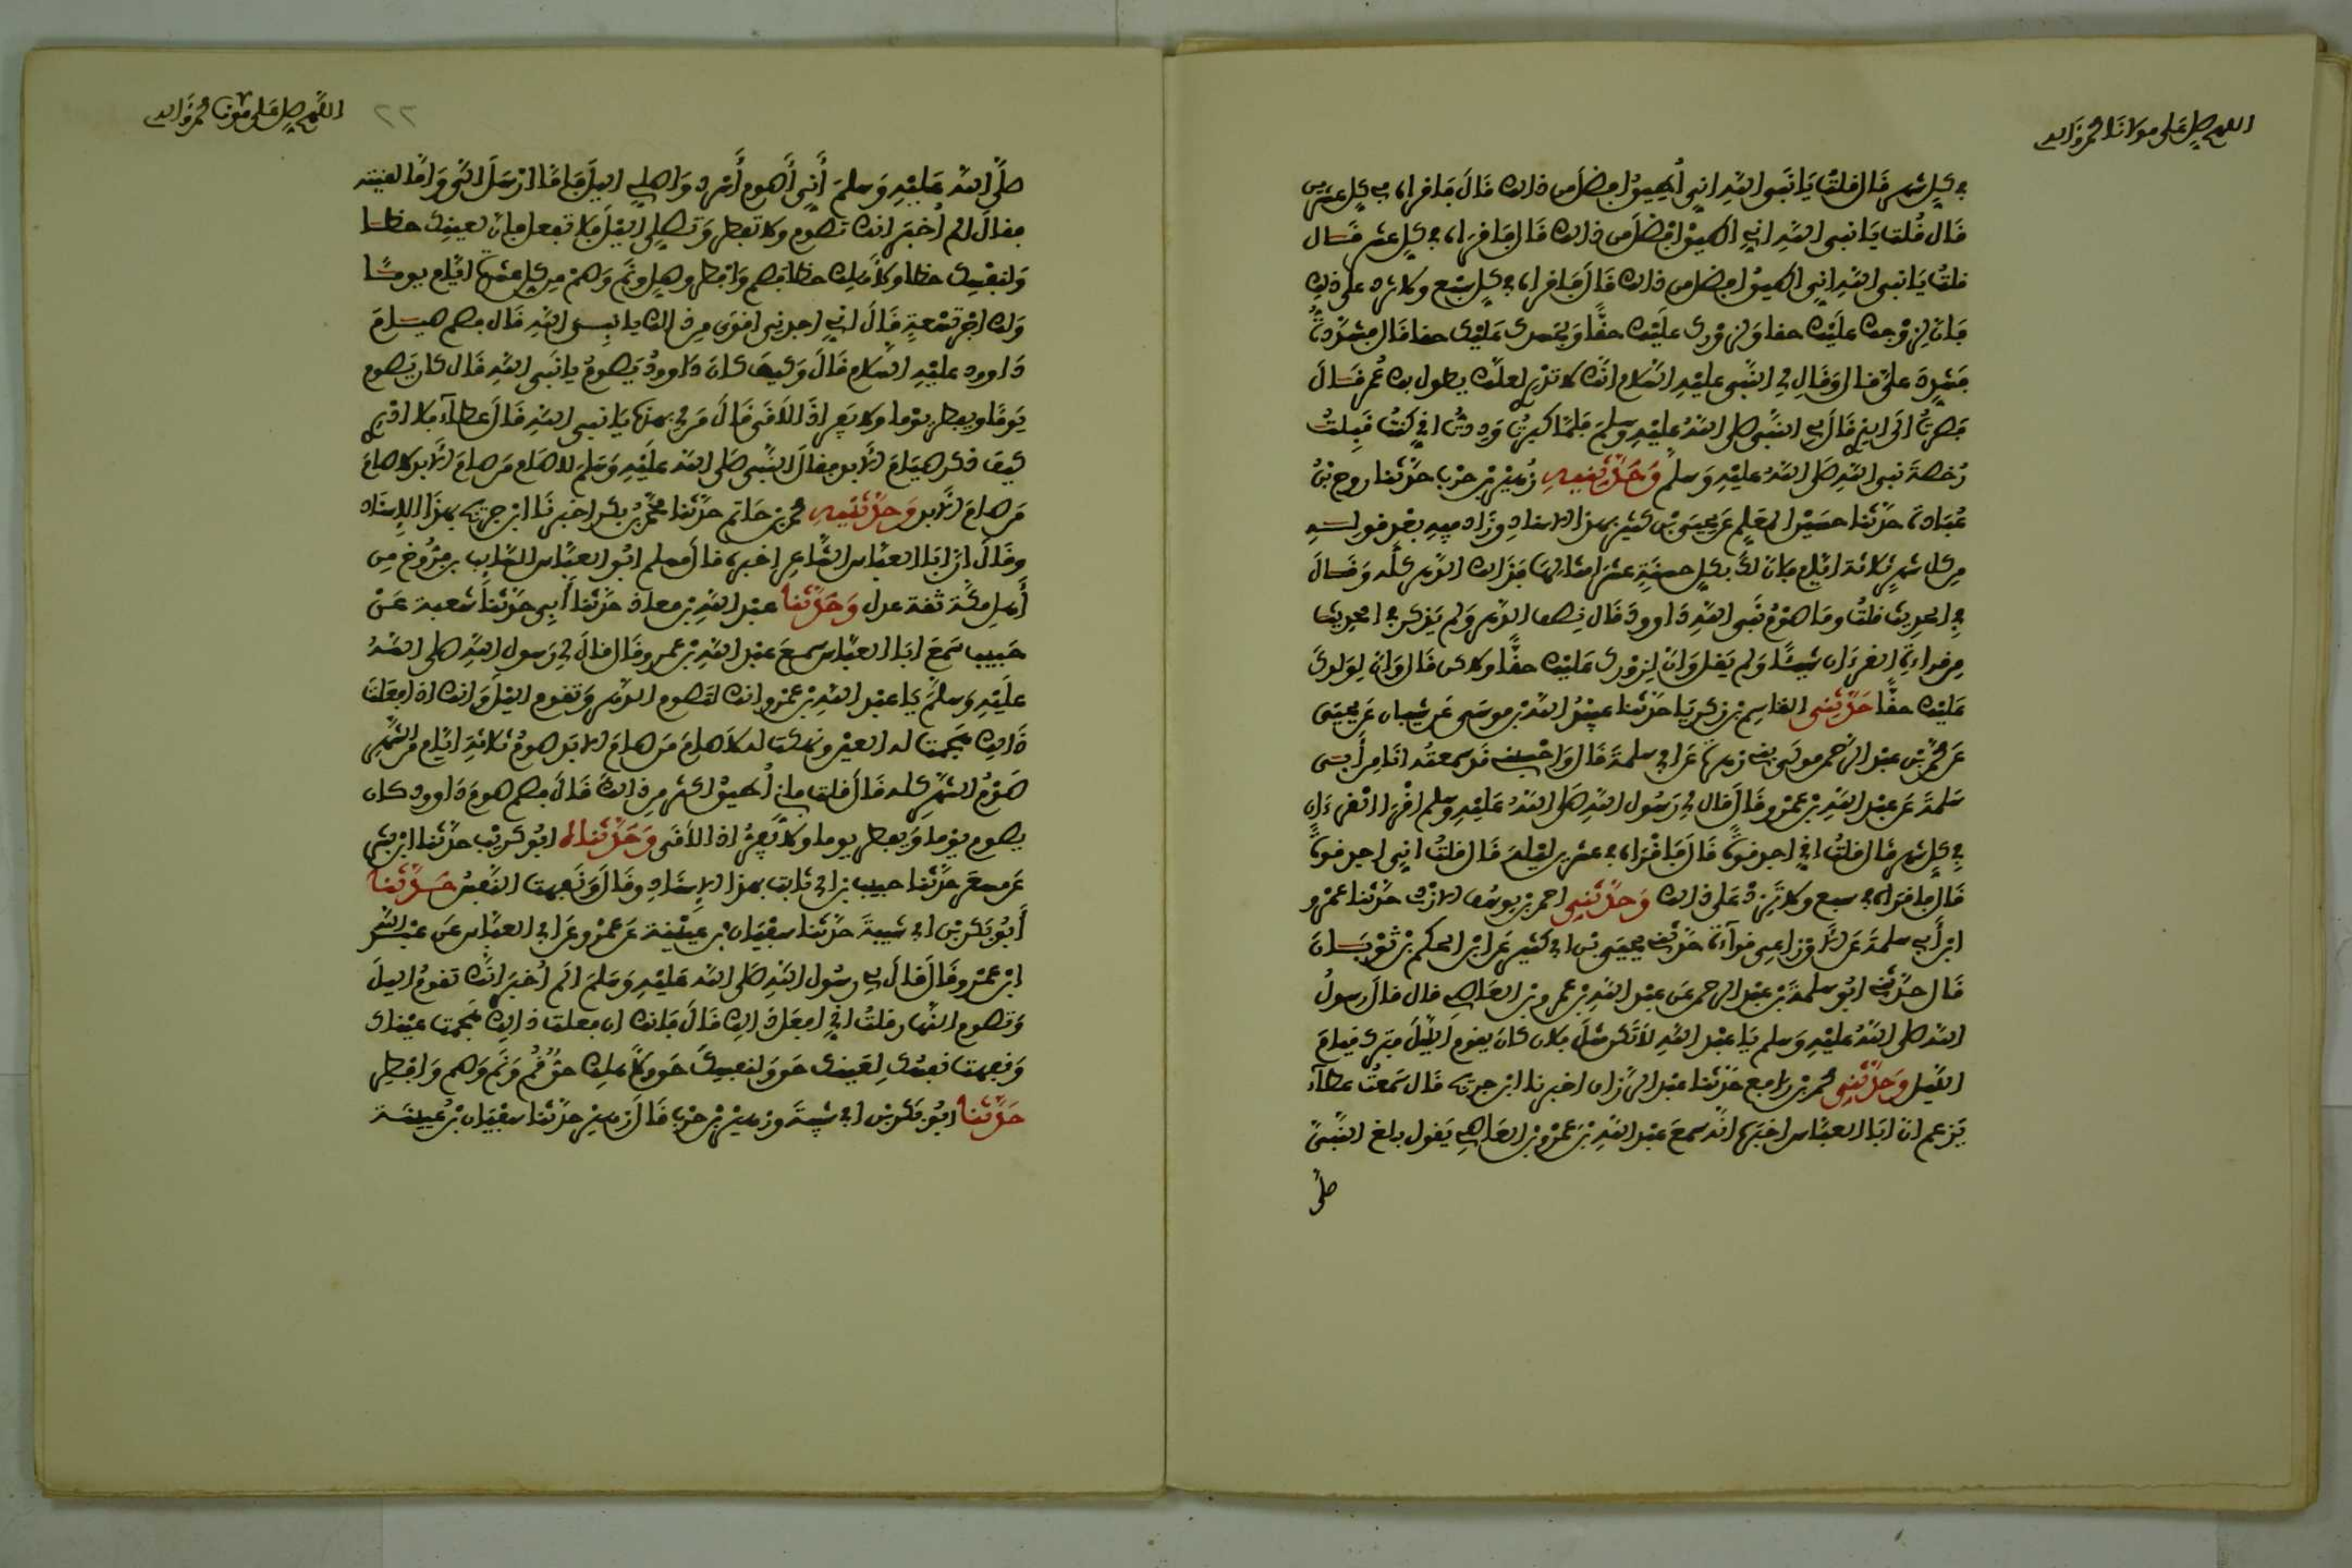 اللهم صل على مولانا محمد وآله
في كل شهر قال قلت يا نبي الله اني أطيق افضل من ذلك قال فاقراه في كل عشرين
قال قلت يا نبي الله اني اطيق افضل من ذلك قال فاقراه في كل عشر قال
قلت يا نبي الله اني اطيق افضل من ذلك قال فاقراه في كل سبع ولا تزد على ذلك
فان لزوجك عليك حقا ولزورك عليك حقا ولجسدك عليك حقا قال فشددت
فشدد علي قال وقال لي النبي عليه السلام انك لا تدري لعلك يطول بك عمر قال
فصرت الى الذي قال لي النبي صلى الله عليه وسلم فلما كبرت وددت اني كنت قبلت
رخصة نبي الله صلى الله عليه وسلم وحدثنيه زهير بن حرب حدثنا روح بن
عبادة حدثنا حسين المعلم عن يحيى بن كثير بهذا الاسناد وزاد فيه بعد قوله
من كل شهر ثلاثة ايام فان لك بكل حسنة عشر امثالها فذلك الدهر كله وقال
في الحديث قلت وما صوم نبي الله داوود قال نصف الدهر ولم يذكر في الحديث
من قراءة القرءان شيئا ولم يقل وان لزورك عليك حقا ولاكن قال وان لولدك
عليك حقا حدثني القاسم بن زكريا حدثنا عبيد الله بن موسى عن شيبان عن يحيى
عن محمد بن عبد الرحمن مولى بني زهرة عن ابي سلمة قال واحسبني قد سمعته انا من أبي
سلمة عن عبد الله بن عمرو قال قال لي رسول الله صلى الله عليه وسلم اقرا القرءان
في كل شهر قال قلت اني اجد قوة قال فاقراه في عشرين ليلة قال قلت اني اجد قوة
قال فاقراه في سبع ولا تزد على ذلك وحدثني احمد بن يوسف الازدي حدثنا عمرو
ابن أبي سلمة عن الاوزاعي قراءة حدثني يحيى بن ابي كثير عن ابن الحكم بن ثوبان
قال حدثني ابو سلمة بن عبد الرحمن عن عبد الله بن عمرو بن العاصي قال قال رسول
الله صلى الله عليه وسلم يا عبد الله لا تكن مثل فلان كان يقوم الليل فترك قيام
الليل وحدثني محمد بن رافع حدثنا عبد الرزاق اخبرنا ابن جريج قال سمعت عطاء
يزعم ان ابا العباس اخبره انه سمع عبد الله بن عمرو بن العاصي يقول بلغ النبي
صلى
اللهم صل على محمد وآله
٢٢
صلى الله عليه وسلم أني أصوم أسرد واصلي اليل فاما ارسل الي واما لقيته
فقال الم أخبر انك تصوم ولا تفطر وتصلي الليل فلا تفعل فان لعينك حظا
ولنفسك حظا ولاهلك حظا فصم وافطر وصل ونم وصم من كل عشرة ايام يوما
ولك اجر تسعة قال اني اجدني اقوى من ذلك يا نبي الله قال فصم صيام
داوود عليه السلام قال وكيف كان داوود يصوم يا نبي الله قال كان يصوم
يوما ويفطر يوما ولا يفر اذا لاقى قال من لي بهذه يا نبي الله قال عطاء فلا ادري
كيف ذكر صيام الابد فقال النبي صلى الله عليه وسلم لا صام من صام الابد لا صام
من صام الابد وحدثنيه محمد بن حاتم حدثنا محمد بن بكر اخبرنا ابن جريج بهذا الاسناد
وقال ان ابا العباس الشاعر اخبره قال مسلم ابو العباس السايب بن فروخ من
أهل مكة ثقة عدل وحدثنا عبد الله بن معاذ حدثنا أبي حدثنا شعبة عن
حبيب سمع ابا العباس سمع عبد الله بن عمرو قال قال لي رسول الله صلى الله
عليه وسلم يا عبد الله بن عمرو انك لتصوم الدهر وتقوم اليل وانك اذا فعلت
ذلك هجمت له العين ونهكت له لا صام من صام الابد صوم ثلاثة ايام من الشهر
صوم الشهر كله قال قلت فاني أطيق اكثر من ذلك قال فصم صوم داوود كان
يصوم يوما ويفطر يوما ولا يفر اذا لاقى وحدثناه ابو كريب حدثنا ابن بشر
عن مسعر حدثنا حبيب بن ابي ثابت بهذا الاسناد وقال ونفهت النفس حدثنا
أبو بكر بن ابي شيبة حدثنا سفيان بن عيينة عن عمرو عن ابي العباس عن عبد الله
ابن عمرو قال قال لي رسول الله صلى الله عليه وسلم الم أخبر انك تقوم اليل
وتصوم النهار قلت اني افعل ذلك قال فانك ان فعلت ذلك هجمت عيناك
ونفهت نفسك لعينك حق ولنفسك حق ولاهلك حق قم ونم وصم وافطر
حدثنا ابو بكر بن ابي شيبة وزهير بن حرب قال زهير حدثنا سفيان بن عيينة